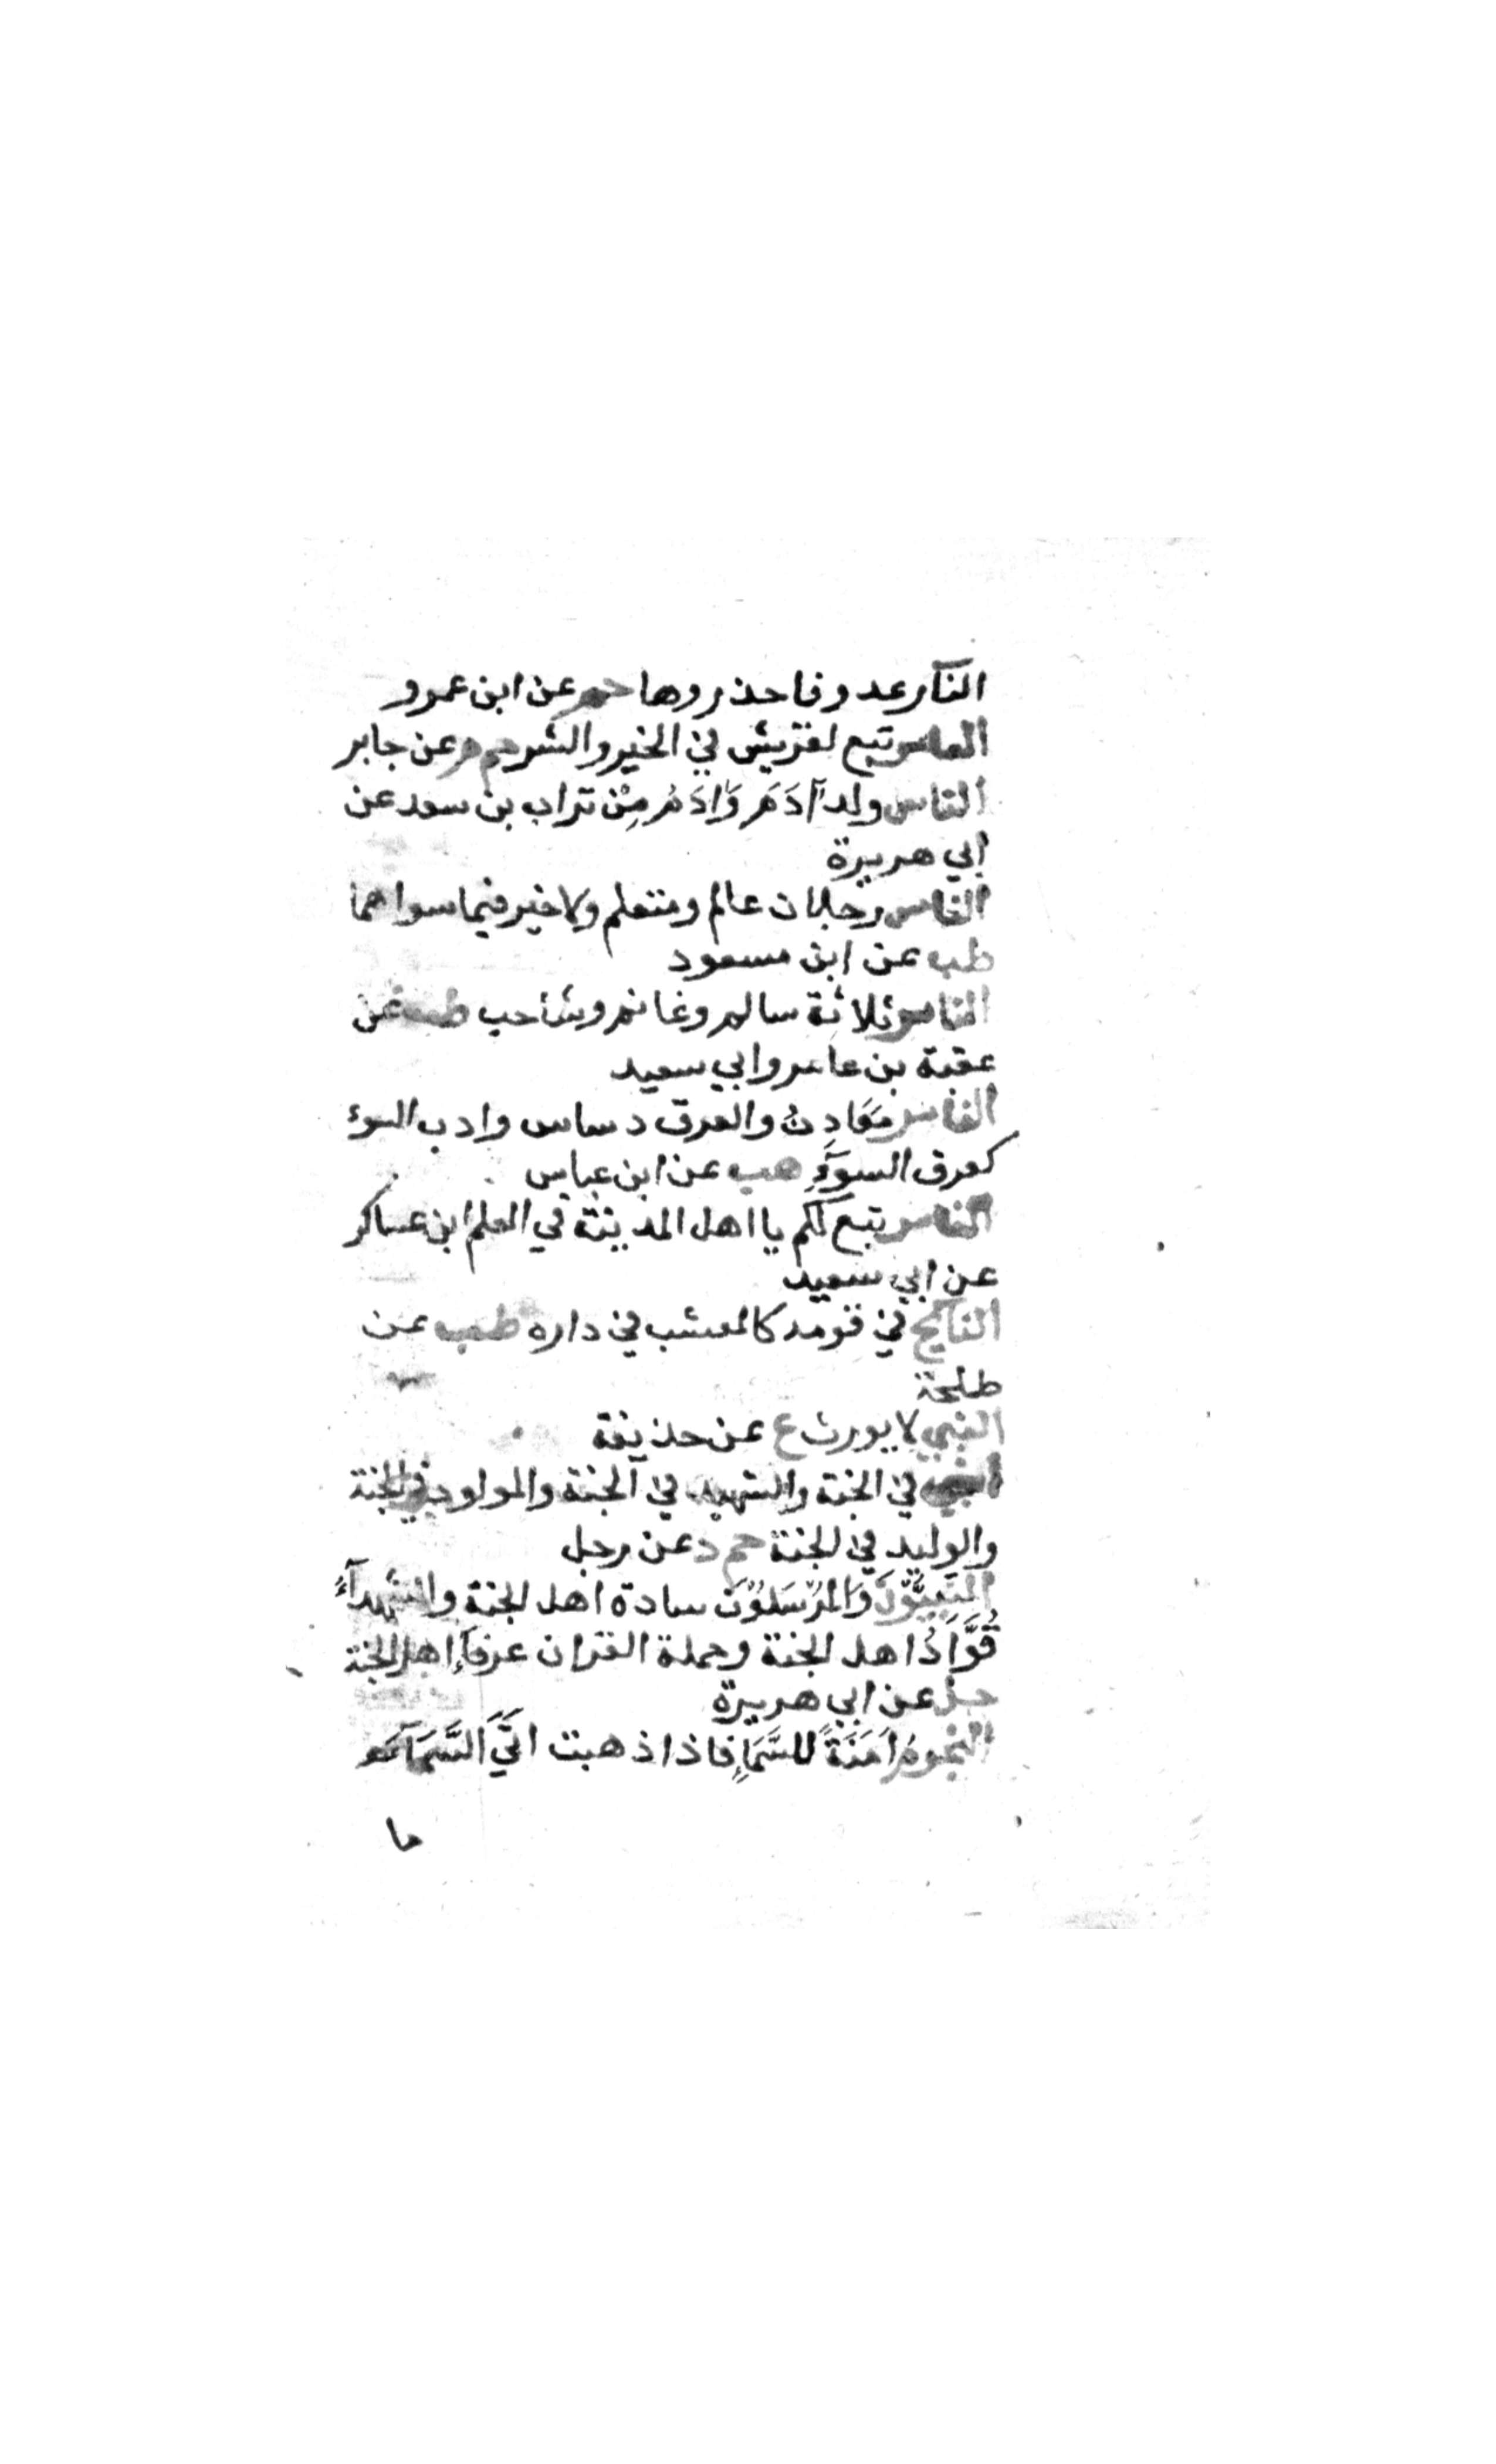 النآر عدو فاحذروها حم عن ابن عمرو
الناس تبع لقريش في الخير والشر حم م عن جابر
الناس ولد آدَمَ وَادَمُ مِنْ تراب بن سعد عن
ابي هريرة
الناس رجلان عالم ومتعلم ولا خير فيما سواهما
طب عن ابن مسعود
الناس ثلاثة سالم وغانم وشاحب طب عن
عقبة بن عامر وابي سعيد
الناس مَعَادِنُ والعرق دساس وادب السوء
كعرق السوَءِ هب عن ابن عباس
الناس تبع لكم يا اهل المدينة في العلم ابن عساكر
عن ابي سعيد
الناكح في قومه كالمعشب في داره طب عن
طلحة
النبي لا يورث ع عن حذيفة
النبي في الجنة والشهيد في الجنة والمولود في الجنة
والوليد في الجنة حم د عن رجل
النَّبِيُّوْنَ وَالمُرْسَلُوْنَ سادة اهل الجنة والشهدآءُ
قُوَّادُ اهل الجنة وحملة القران عرفآءِ اهل الجنة
حل عن ابي هريرة
النجومُ اَمَنَةً للسَّمَآءِ فاذا ذهبت اتَيَ السَّمَآءَ
ما